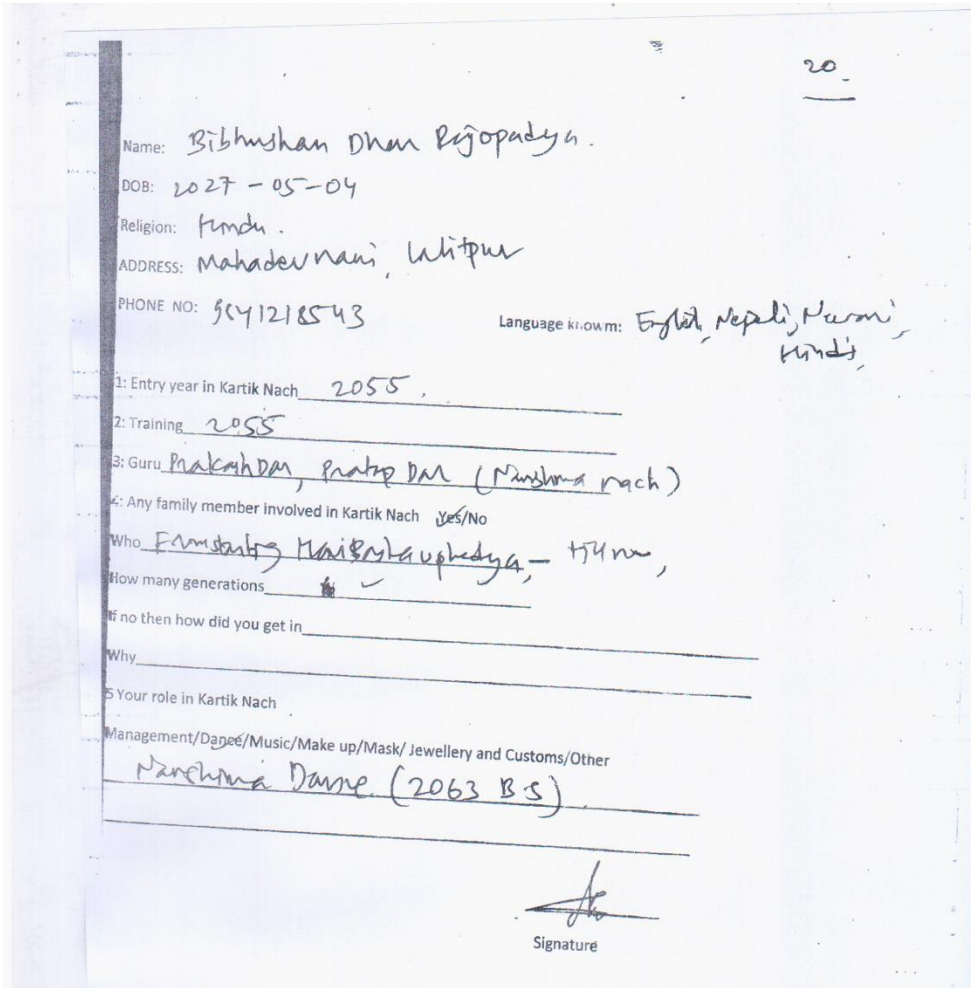 20
Name: Bibhushan Dhar Rajopadhya.
DOB: 2027-05-04
Religion: Hindu.
ADDRESS: Mahadevnani, Lalitpur
PHONE NO: 9841218543
Language knowm: English, Nepali, Newari,
Hindi,
1: Entry year in Kartik Nach 2055.
2: Training 2055
3: Guru Prakash Dhar, Pratap Dhar ( nach)
4: Any family member involved in Kartik Nach Yes/No
Who
How many generations
If no then how did you get in
Why
5 Your role in Kartik Nach
Management/Dance/Music/Make up/Mask/ Jewellery and Customs/Other
(2063 BS)
Signature